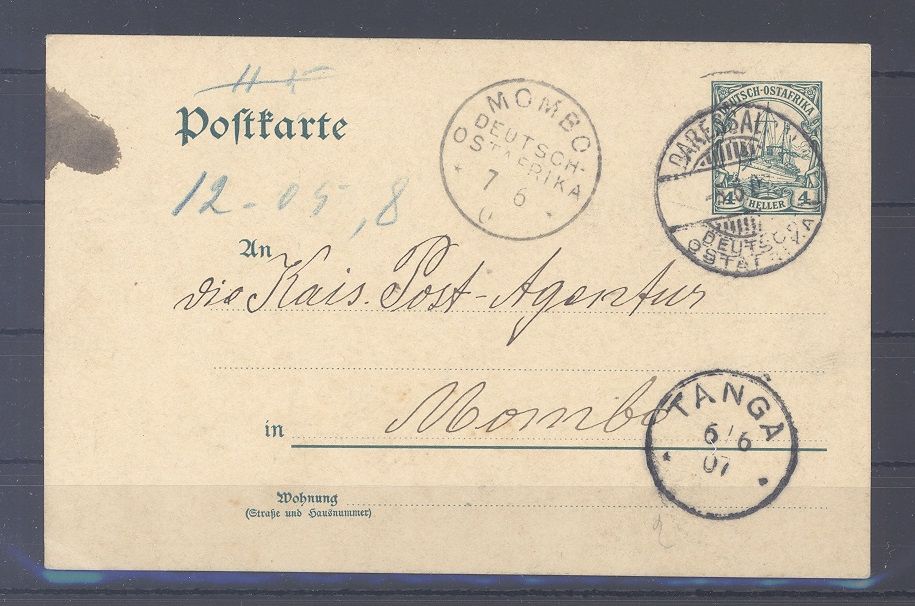 Postkarte
12-05,8
MOMBO
DEUTSCH-
OSTAFRIKA
7 6
DEUTSCH-OSTAFRIKA
4 HELLER 4
DARESSAL
DEUTSCH
OSTAFRIKA
An
die Kais. Post-Agentur
in Mombo
TANGA
6/6
07
Wohnung
(Straße und Hausnummer)